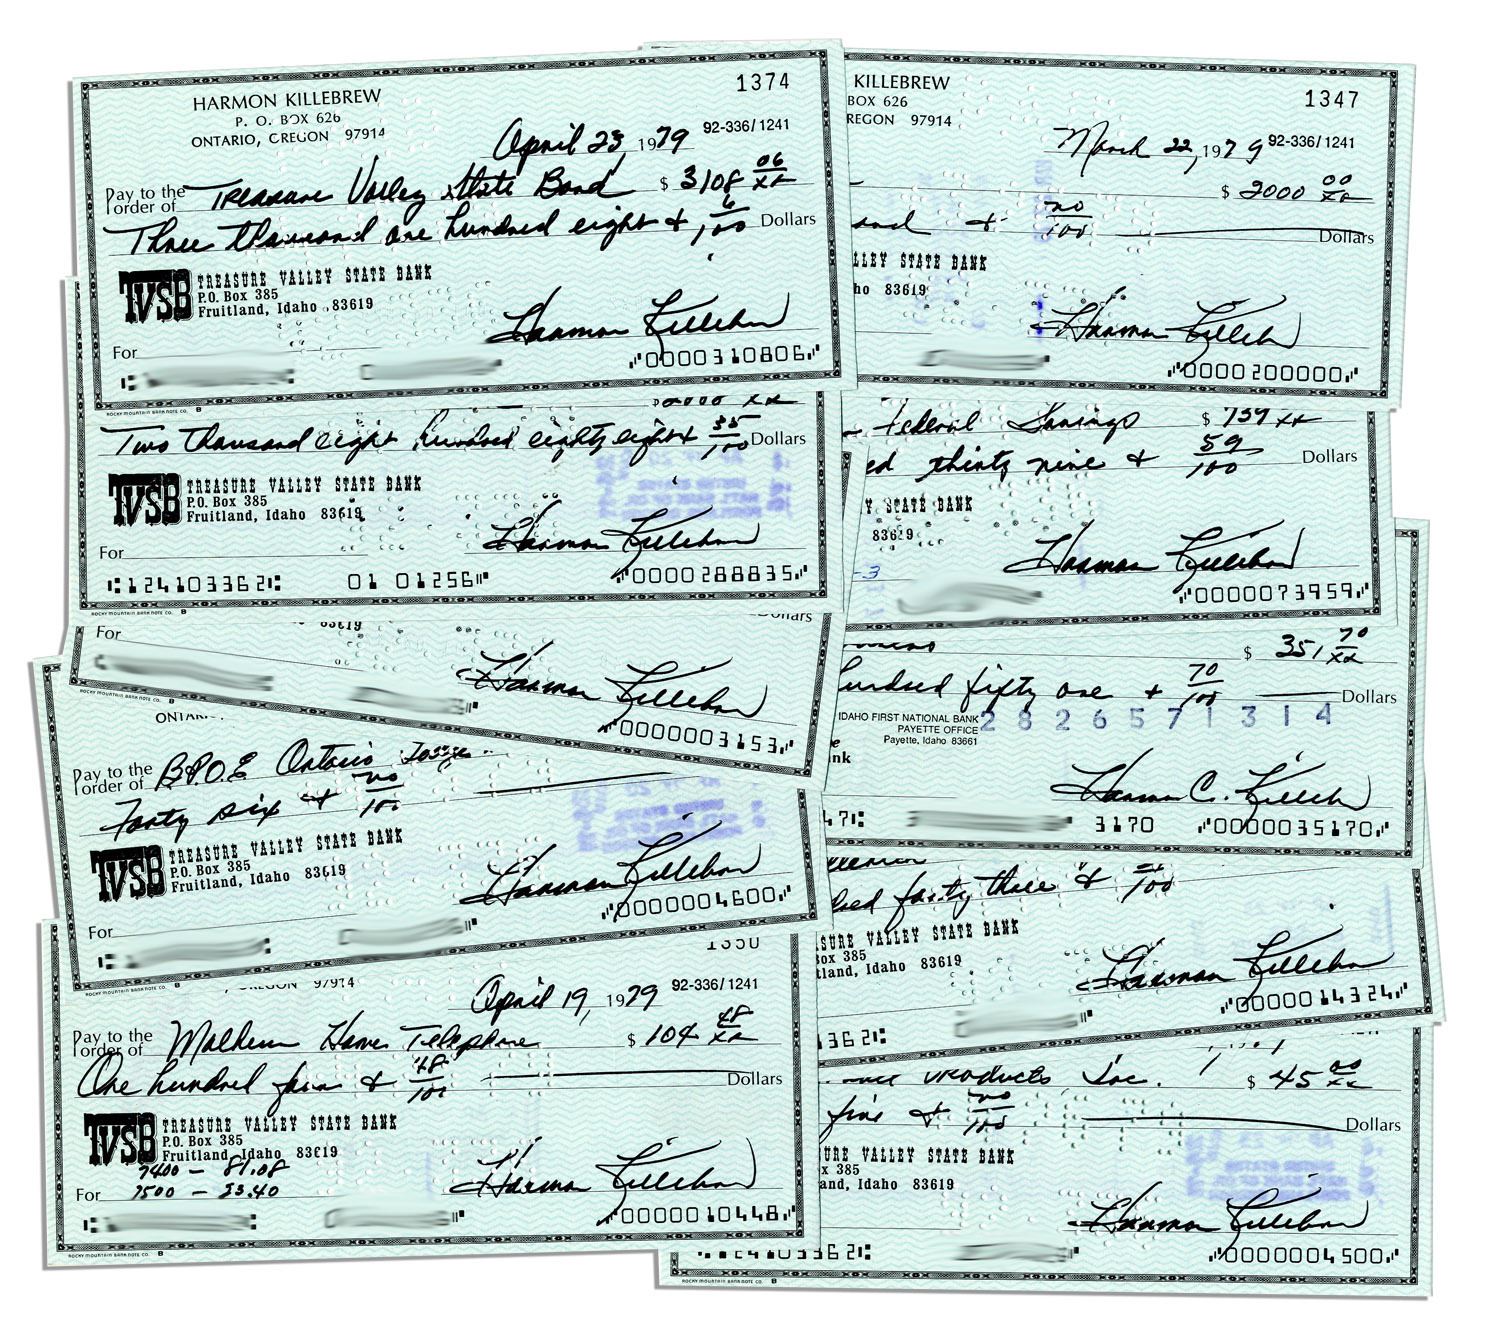 1374
HARMON KILLEBREW
P. O. BOX 626
ONTARIO, OREGON 97914
April 23 1979 92-336/1241
Pay to the order of Treasure Valley State Bank $ 3108 06/xx
Three thousand one hundred eight & 6/100 Dollars
TVSB TREASURE VALLEY STATE BANK
P.O. Box 385
Fruitland, Idaho 83619
Harmon Killebrew
For
0000310806
ROCKY MOUNTAIN BANK NOTE CO. B
Two thousand eight hundred eighty eight & 35/100 Dollars
TVSB TREASURE VALLEY STATE BANK
P.O. Box 385
Fruitland, Idaho 83619
Harmon Killebrew
For
124103362 01 01256 0000288835
ROCKY MOUNTAIN BANK NOTE CO. B
Dollars
83619
For
Harmon Killebrew
0000003153
ROCKY MOUNTAIN BANK NOTE CO.
Pay to the order of B.P.O.E Ontario
Forty six & no/100
TVSB TREASURE VALLEY STATE BANK
P.O. Box 385
Fruitland, Idaho 83619
Harmon Killebrew
For
0000004600
ROCKY MOUNTAIN BANK NOTE CO. B
1350
OREGON 97914
April 19, 1979 92-336/1241
Pay to the order of Malheur Home Telephone $ 104 48/xx
One hundred four & 48/100 Dollars
TVSB TREASURE VALLEY STATE BANK
P.O. Box 385
Fruitland, Idaho 83619
7400 - 81.08
For 7500 - 23.40
Harmon Killebrew
0000010448
ROCKY MOUNTAIN BANK NOTE CO. B
KILLEBREW
1347
BOX 626
REGON 97914
March 22, 1979 92-336/1241
$ 2000 00/xx
sand & no/100 Dollars
LLEY STATE BANK
ho 83619
Harmon Killebrew
0000200000
Federal Savings $ 739 xx
ed thirty nine & 59/100 Dollars
Y STATE BANK
83619
-3
Harmon Killebrew
0000073959
$ 351 70/xx
hundred fifty one & 70/100 Dollars
IDAHO FIRST NATIONAL BANK
PAYETTE OFFICE
Payette, Idaho 83661
2826571314
nk
Harmon C. Killebrew
47 3170 0000035170
dred forty three & /100
SURE VALLEY STATE BANK
ox 385
tland, Idaho 83619
Harmon Killebrew
3362 0000014324
Products Inc. $ 45 00/xx
five & no/100 Dollars
URE VALLEY STATE BANK
x 385
and, Idaho 83619
Harmon Killebrew
124103362 0000004500
ROCKY MOUNTAIN BANK NOTE CO. B